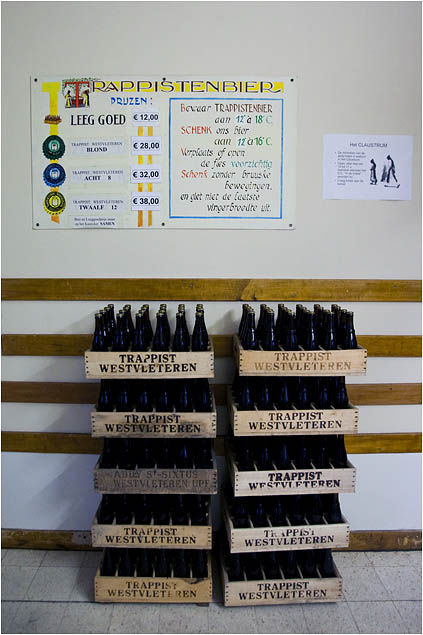 TRAPPISTENBIER
PRIJZEN:
LEEG GOED € 12,00
TRAPPIST WESTVLETEREN
BLOND
€ 28,00
TRAPPIST WESTVLETEREN
ACHT 8
€ 32,00
TRAPPIST WESTVLETEREN
TWAALF 12
€ 38,00
Bier en Leeggoed
SAMEN
Bewaar TRAPPISTENBIER
aan 12° à 18°C.
SCHENK ons bier
aan 12° à 16°C.
Verplaats of open
de fles voorzichtig
Schenk zonder bruuske
bewegingen,
en giet niet de laatste
vingerbreedte uit.
Het CLAUSTRUM
TRAPPIST
WESTVLETEREN
TRAPPIST
WESTVLETEREN
TRAPPIST
WESTVLETEREN
TRAPPIST
WESTVLETEREN
ABDIJ ST-SIXTUS
WESTVLETEREN
TRAPPIST
WESTVLETEREN
TRAPPIST
WESTVLETEREN
TRAPPIST
WESTVLETEREN
TRAPPIST
WESTVLETEREN
TRAPPIST
WESTVLETEREN